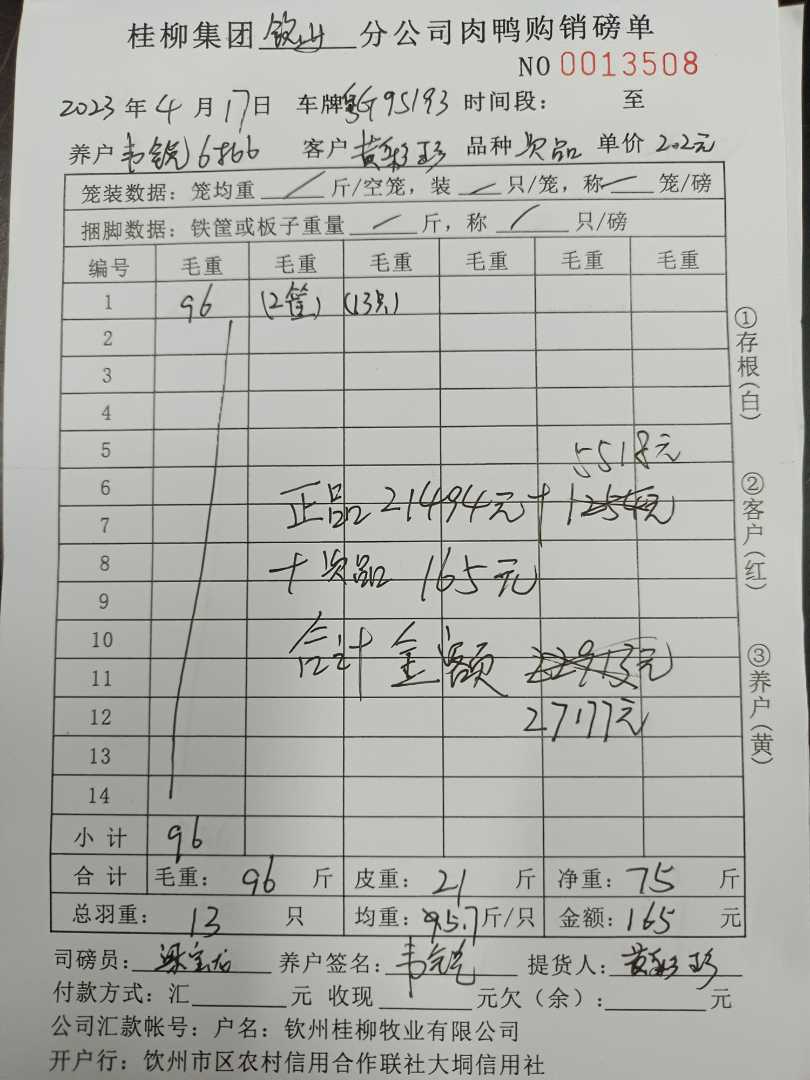 桂柳集团 钦州 分公司肉鸭购销磅单
NO 0013508
2023 年 4 月 17 日 车牌 G95193 时间段： 至
养户 韦 客户 黄彩珍 品种 次品 单价 2.2元
笼装数据：笼均重 / 斤/空笼，装 / 只/笼，称 / 笼/磅
捆脚数据：铁筐或板子重量 / 斤，称 / 只/磅
编号 毛重 毛重 毛重 毛重 毛重 毛重
1 96 (2筐) (13只)
2
3
4
5 5518元
6
7 正品 21494元+1254元
8 +次品 165元
9
10
11 合计金额 22913元
12 27177元
13
14
小计 96
合计 毛重： 96 斤 皮重： 21 斤 净重： 75 斤
总羽重： 13 只 均重： 5.7 斤/只 金额： 165 元
司磅员： 养户签名： 韦 提货人： 黄彩珍
付款方式：汇 元 收现 元欠（余）： 元
公司汇款帐号：户名：钦州桂柳牧业有限公司
开户行：饮州市区农村信用合作联社大垌信用社
①存根（白）
②客户（红）
③养户（黄）